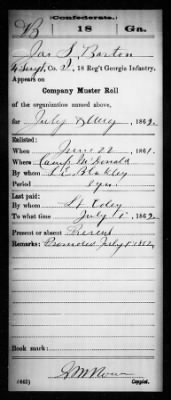 Confederate.
B 18 Ga.
Jas S. Barton
4 Sergt, Co. 18 Reg't Georgia Infantry.
Appears on
Company Muster Roll
of the organization named above,
for July & Aug, 1862.
Enlisted:
When June 22, 1861.
Where Camp McDonald
By whom
Period yrs.
Last paid:
By whom Lt
To what time July 1, 1862.
Present or absent Present
Remarks: Promoted July 1 1862
Book mark:
(642) Copyist.